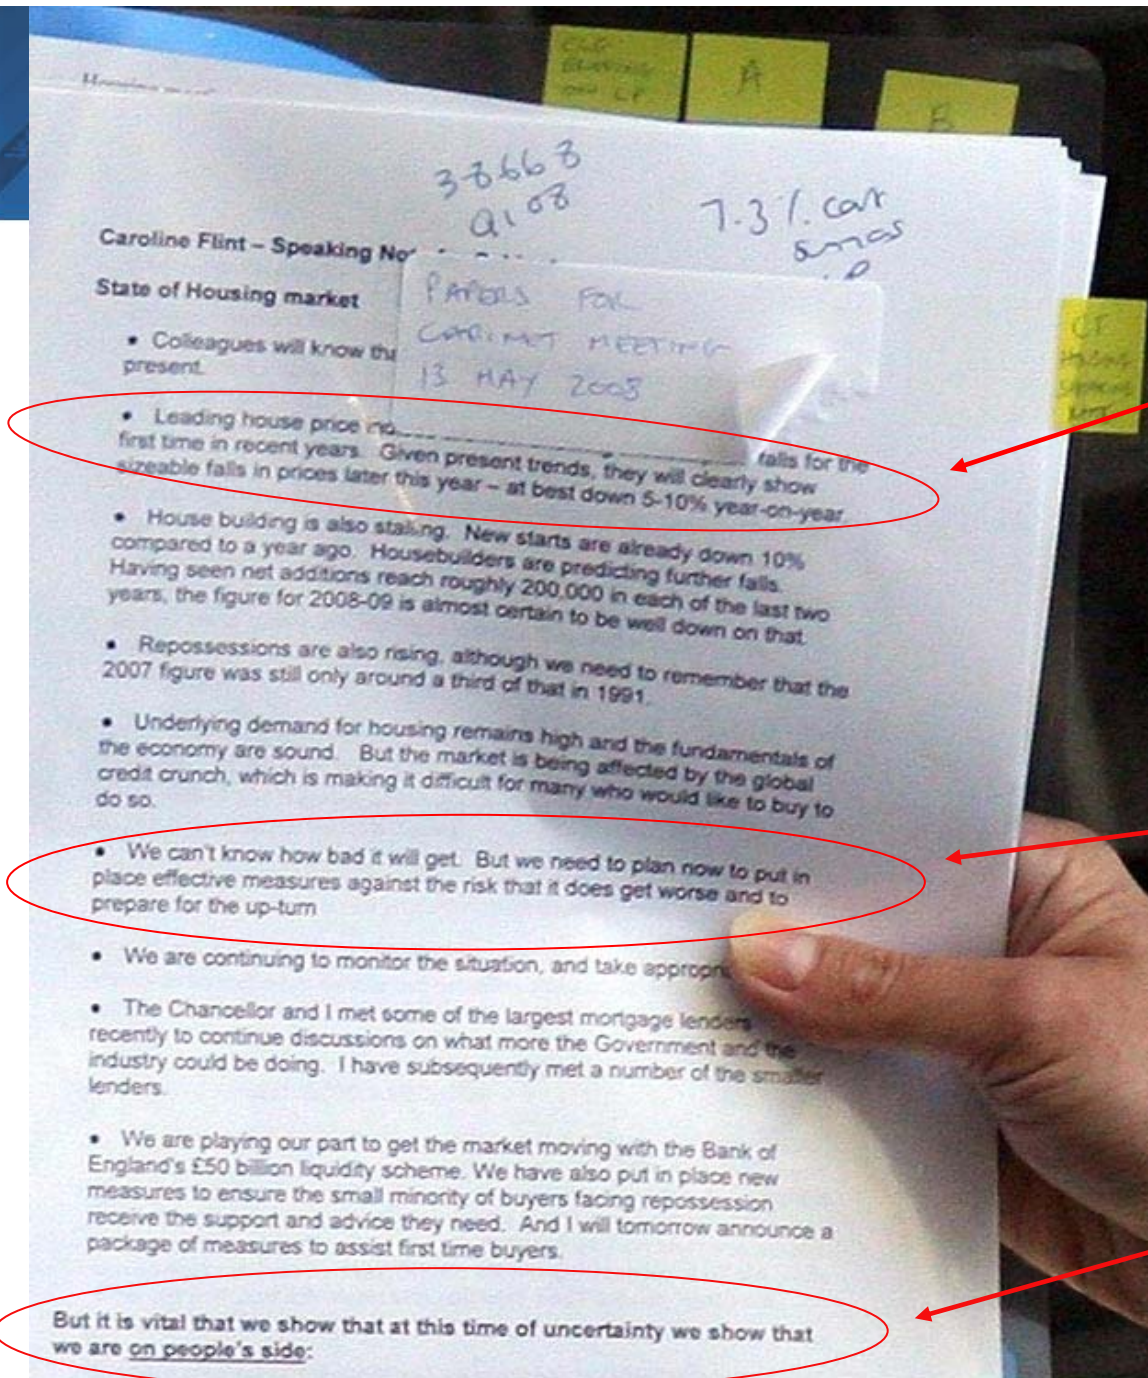 A
B
38668
Q1 08
7.3%
Caroline Flint – Speaking
State of Housing market
PAPERS FOR
CABINET MEETING
13 MAY 2008
CF
• Colleagues will know
present.
• Leading house price falls for the
first time in recent years. Given present trends, they will clearly show
sizeable falls in prices later this year – at best down 5-10% year-on-year.
• House building is also stalling. New starts are already down 10%
compared to a year ago. Housebuilders are predicting further falls.
Having seen net additions reach roughly 200,000 in each of the last two
years, the figure for 2008-09 is almost certain to be well down on that.
• Repossessions are also rising, although we need to remember that the
2007 figure was still only around a third of that in 1991.
• Underlying demand for housing remains high and the fundamentals of
the economy are sound. But the market is being affected by the global
credit crunch, which is making it difficult for many who would like to buy to
do so.
• We can't know how bad it will get. But we need to plan now to put in
place effective measures against the risk that it does get worse and to
prepare for the up-turn
• We are continuing to monitor the situation, and take
• The Chancellor and I met some of the largest mortgage lenders
recently to continue discussions on what more the Government and the
industry could be doing. I have subsequently met a number of the smaller
lenders.
• We are playing our part to get the market moving with the Bank of
England's £50 billion liquidity scheme. We have also put in place new
measures to ensure the small minority of buyers facing repossession
receive the support and advice they need. And I will tomorrow announce a
package of measures to assist first time buyers.
But it is vital that we show that at this time of uncertainty we show that
we are on people's side: